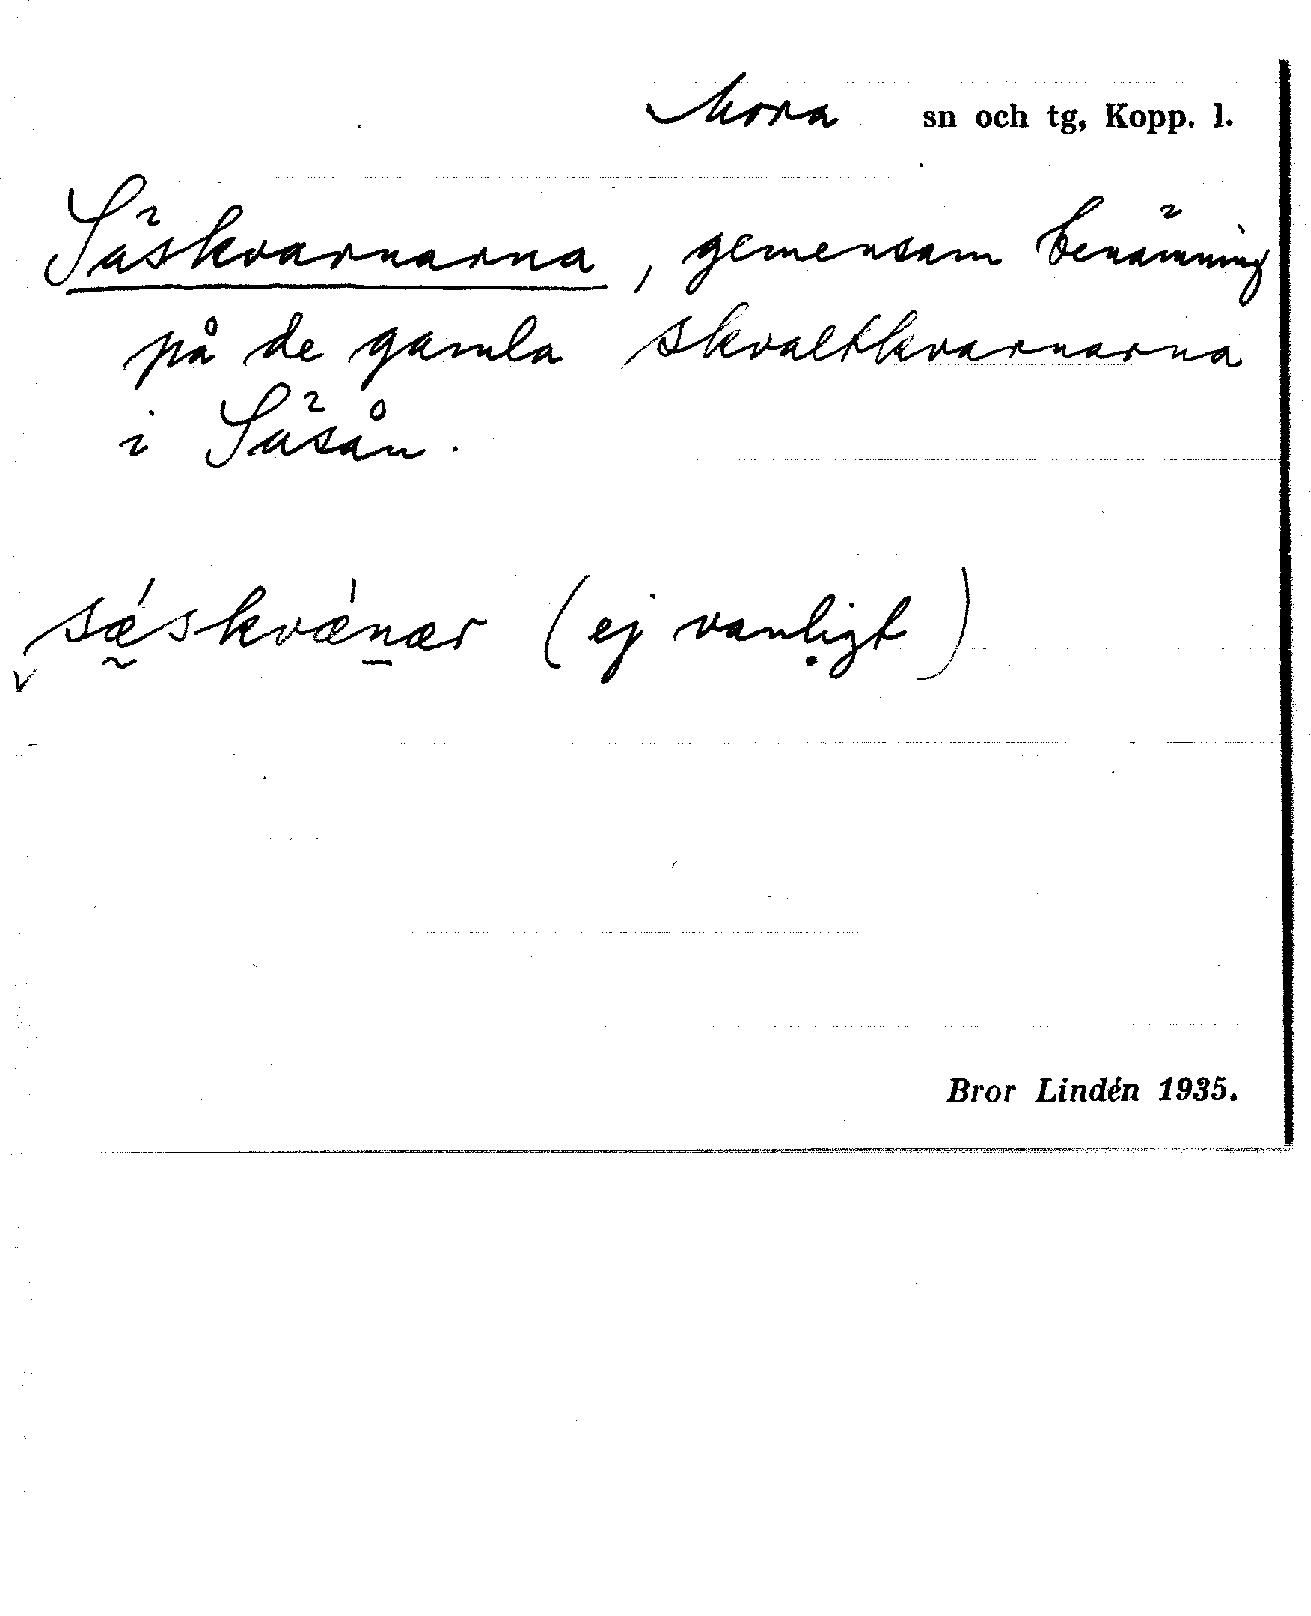 Mora sn och tg, Kopp. l.
Säskvarnarna, gemensam benämning
på de gamla skvaltkvarnarna
i Säsån.
sǽskvǽnær (ej vanligt)
Bror Lindén 1935.